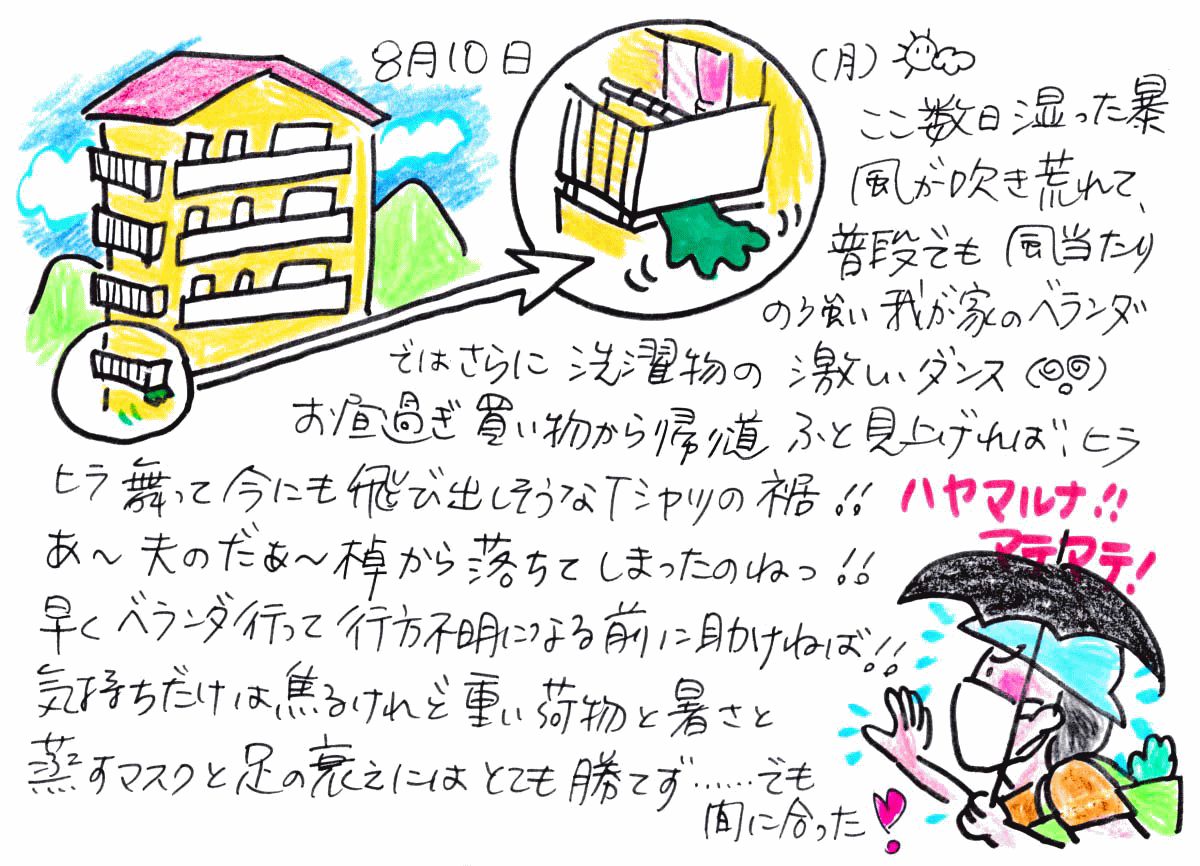 8月10日 (月)
ここ数日湿った暴
風が吹き荒れて、
普段でも風当たり
の強い我が家のベランダ
ではさらに洗濯物の激しいダンス
お昼過ぎ買い物から帰り道ふと見上げれば、ヒラ
ヒラ舞って今にも飛び出しそうなTシャツの裾!!
あ〜夫のだぁ〜棹から落ちてしまったのねっ!!
早くベランダ行って行方不明になる前に助けねば!!
気持ちだけは焦るけれど重い荷物と暑さと
蒸すマスクと足の衰えにはとても勝てず……でも
間に合った
ハヤマルナ!!
マテマテ!